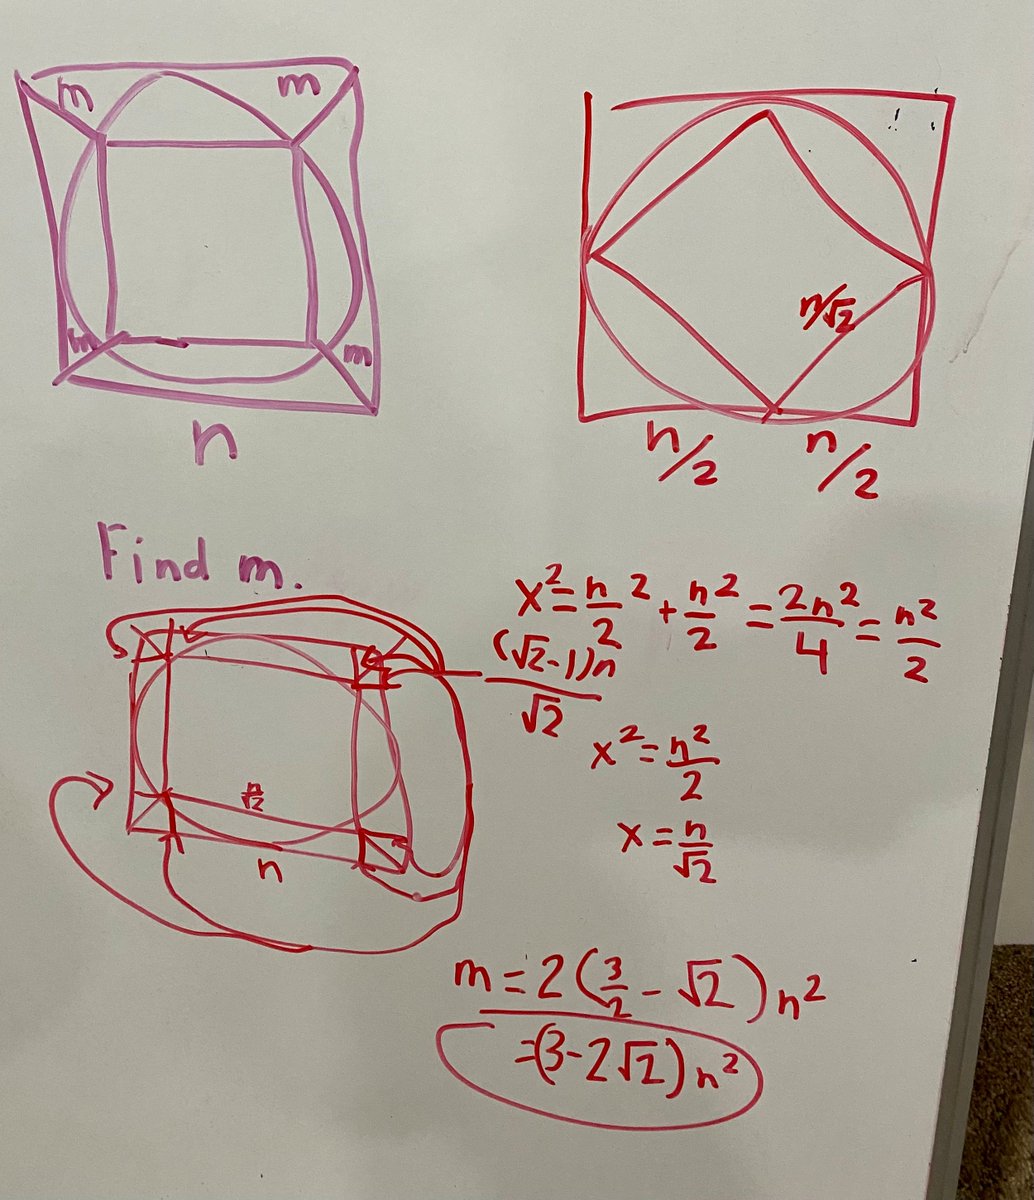 m m
m m
n
n/√2
n/2 n/2
Find m.
x²=n/2² + n/2² = 2n²/4 = n²/2
(√2-1)n/√2
x²=n²/2
n/√2
n
x=n/√2
m=2(3/2-√2)n²
=(3-2√2)n²